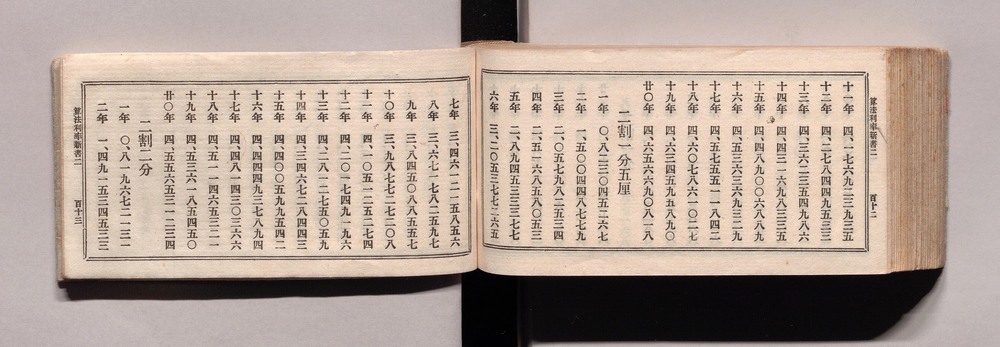 算法利率新書二　百十二
十一年　四、一七六九二三九三五
十二年　四、二七八四四九五三三
十三年　四、三六二三五四九八六
十四年　四、四三一六九八三三五
十五年　四、四八九〇〇六八八九
十六年　四、五三六三六九三二九
十七年　四、五七五五一一八四二
十八年　四、六〇七八六一〇二七
十九年　四、六三四五九五八九〇
廿〇年　四、六五六六九〇八一八
二割一分五厘
一年　〇、八二三〇四五二六七
二年　一、五〇〇四四八七七九
三年　二、〇五七九八二五三四
四年　二、五一六八五八〇五三
五年　二、八九四五三三三七七
六年　三、二〇五三七七二六五
七年　三、四六一二一五八五六
八年　三、六七一七八二五九七
九年　三、八四五〇八八五五七
十〇年　三、九八七七二七二〇八
十一年　四、一〇五一二五二七四
十二年　四、二〇一七四九一九六
十三年　四、二八一二七五〇五九
十四年　四、三四六七二八四四三
十五年　四、四〇〇五九九五四二
十六年　四、四四四九三七八九四
十七年　四、四八一四三〇三六六
十八年　四、五一一四六五三二一
十九年　四、五三六一八五四五〇
廿〇年　四、五五六五三一二三四
二割二分
一年　〇、八一九六七二一三一
二年　一、四九一五三四五三三
算法利率新書二　百十三